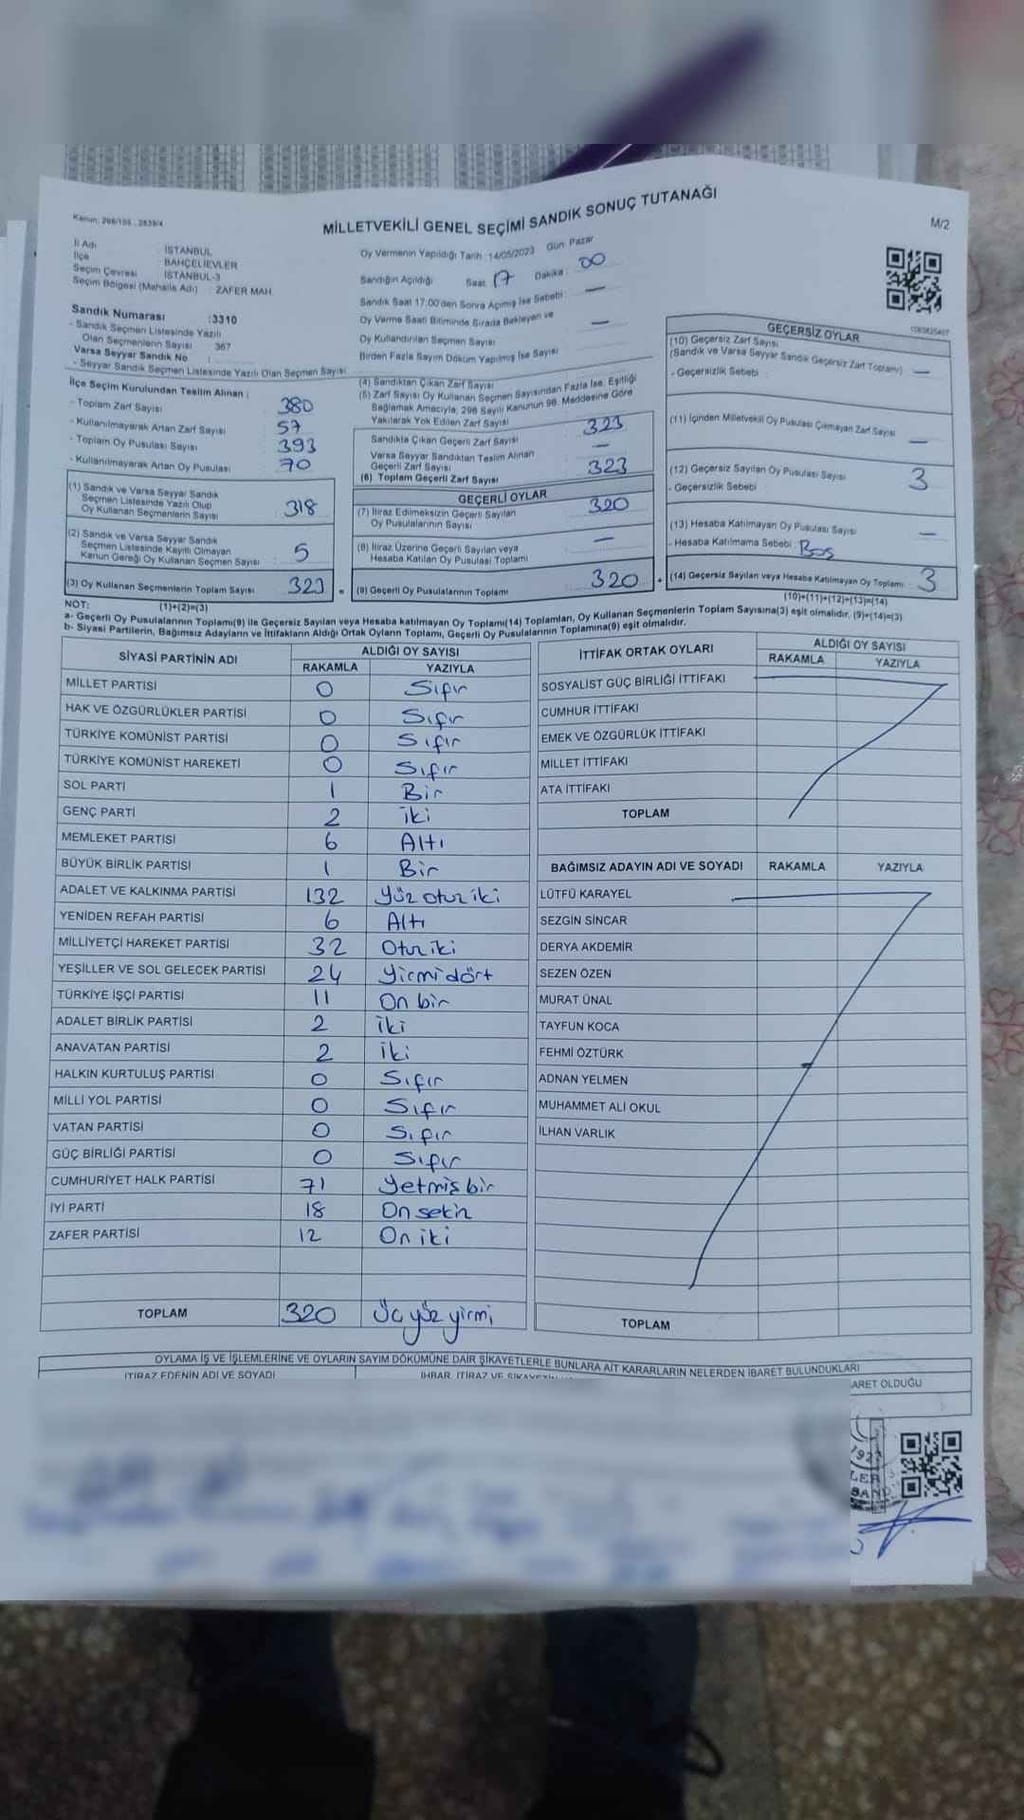 Kanun: 298/105 , 2839/4
MİLLETVEKİLİ GENEL SEÇİMİ SANDIK SONUÇ TUTANAĞI
M/2
İl Adı : İSTANBUL
İlçe : BAHÇELİEVLER
Seçim Çevresi : İSTANBUL-3
Seçim Bölgesi (Mahalle Adı) : ZAFER MAH
Oy Vermenin Yapıldığı Tarih :14/05/2023 Gün: Pazar
Sandığın Açıldığı Saat: 17 Dakika : 00
Sandık Saat 17:00'den Sonra Açılmış İse Sebebi: —
Oy Verme Saati Bitiminde Sırada Bekleyen ve
Oy Kullandırılan Seçmen Sayısı —
Birden Fazla Sayım Döküm Yapılmış İse Sayısı
Sandık Numarası :3310
- Sandık Seçmen Listesinde Yazılı
Olan Seçmenlerin Sayısı : 367
Varsa Seyyar Sandık No :
- Seyyar Sandık Seçmen Listesinde Yazılı Olan Seçmen Sayısı
İlçe Seçim Kurulundan Teslim Alınan :
- Toplam Zarf Sayısı : 380
- Kullanılmayarak Artan Zarf Sayısı : 57
- Toplam Oy Pusulası Sayısı : 393
- Kullanılmayarak Artan Oy Pusulası : 70
(1) Sandık ve Varsa Seyyar Sandık
Seçmen Listesinde Yazılı Olup
Oy Kullanan Seçmenlerin Sayısı : 318
(2) Sandık ve Varsa Seyyar Sandık
Seçmen Listesinde Kayıtlı Olmayan
Kanun Gereği Oy Kullanan Seçmen Sayısı : 5
(3) Oy Kullanan Seçmenlerin Toplam Sayısı : 323
(4) Sandıktan Çıkan Zarf Sayısı
(5) Zarf Sayısı Oy Kullanan Seçmen Sayısından Fazla İse, Eşitliği
Bağlamak Amacıyla; 298 Sayılı Kanunun 98. Maddesine Göre
Yakılarak Yok Edilen Zarf Sayısı : 323
Sandıkta Çıkan Geçerli Zarf Sayısı —
Varsa Seyyar Sandıktan Teslim Alınan
Geçerli Zarf Sayısı
(6) Toplam Geçerli Zarf Sayısı : 323
GEÇERLİ OYLAR
(7) İtiraz Edilmeksizin Geçerli Sayılan
Oy Pusulalarının Sayısı : 320
(8) İtiraz Üzerine Geçerli Sayılan veya
Hesaba Katılan Oy Pusulası Toplamı : —
(9) Geçerli Oy Pusulalarının Toplamı : 320
GEÇERSİZ OYLAR
(10) Geçersiz Zarf Sayısı
(Sandık ve Varsa Seyyar Sandık Geçersiz Zarf Toplamı) —
- Geçersizlik Sebebi :
(11) İçinden Milletvekili Oy Pusulası Çıkmayan Zarf Sayısı —
(12) Geçersiz Sayılan Oy Pusulası Sayısı : 3
- Geçersizlik Sebebi :
(13) Hesaba Katılmayan Oy Pusulası Sayısı —
- Hesaba Katılmama Sebebi : Boş
(14) Geçersiz Sayılan veya Hesaba Katılmayan Oy Toplamı : 3
(10)+(11)+(12)+(13)=(14)
NOT: (1)+(2)=(3)
a- Geçerli Oy Pusulalarının Toplamı(9) ile Geçersiz Sayılan veya Hesaba katılmayan Oy Toplamı(14) Toplamları, Oy Kullanan Seçmenlerin Toplam Sayısına(3) eşit olmalıdır. (9)+(14)=(3)
b- Siyasi Partilerin, Bağımsız Adayların ve İttifakların Aldığı Ortak Oyların Toplamı, Geçerli Oy Pusulalarının Toplamına(9) eşit olmalıdır.
SİYASİ PARTİNİN ADI ALDIĞI OY SAYISI
RAKAMLA YAZIYLA
MİLLET PARTİSİ 0 Sıfır
HAK VE ÖZGÜRLÜKLER PARTİSİ 0 Sıfır
TÜRKİYE KOMÜNİST PARTİSİ 0 Sıfır
TÜRKİYE KOMÜNİST HAREKETİ 0 Sıfır
SOL PARTİ 1 Bir
GENÇ PARTİ 2 iki
MEMLEKET PARTİSİ 6 Altı
BÜYÜK BİRLİK PARTİSİ 1 Bir
ADALET VE KALKINMA PARTİSİ 132 Yüz otuz iki
YENİDEN REFAH PARTİSİ 6 Altı
MİLLİYETÇİ HAREKET PARTİSİ 32 Otuz iki
YEŞİLLER VE SOL GELECEK PARTİSİ 24 Yirmi dört
TÜRKİYE İŞÇİ PARTİSİ 11 On bir
ADALET BİRLİK PARTİSİ 2 iki
ANAVATAN PARTİSİ 2 iki
HALKIN KURTULUŞ PARTİSİ 0 Sıfır
MİLLİ YOL PARTİSİ 0 Sıfır
VATAN PARTİSİ 0 Sıfır
GÜÇ BİRLİĞİ PARTİSİ 0 Sıfır
CUMHURİYET HALK PARTİSİ 71 Yetmiş bir
İYİ PARTİ 18 On sekiz
ZAFER PARTİSİ 12 On iki
TOPLAM 320 Üç yüz yirmi
İTTİFAK ORTAK OYLARI ALDIĞI OY SAYISI
RAKAMLA YAZIYLA
SOSYALİST GÜÇ BİRLİĞİ İTTİFAKI
CUMHUR İTTİFAKI
EMEK VE ÖZGÜRLÜK İTTİFAKI
MİLLET İTTİFAKI
ATA İTTİFAKI
TOPLAM
BAĞIMSIZ ADAYIN ADI VE SOYADI RAKAMLA YAZIYLA
LÜTFÜ KARAYEL
SEZGİN SİNCAR
DERYA AKDEMİR
SEZEN ÖZEN
MURAT ÜNAL
TAYFUN KOCA
FEHMİ ÖZTÜRK
ADNAN YELMEN
MUHAMMET ALİ OKUL
İLHAN VARLIK
TOPLAM
OYLAMA İŞ VE İŞLEMLERİNE VE OYLARIN SAYIM DÖKÜMÜNE DAİR ŞİKAYETLERLE BUNLARA AİT KARARLARIN NELERDEN İBARET BULUNDUKLARI
İTİRAZ EDENİN ADI VE SOYADI İHBAR, İTİRAZ VE ARET OLDUĞU